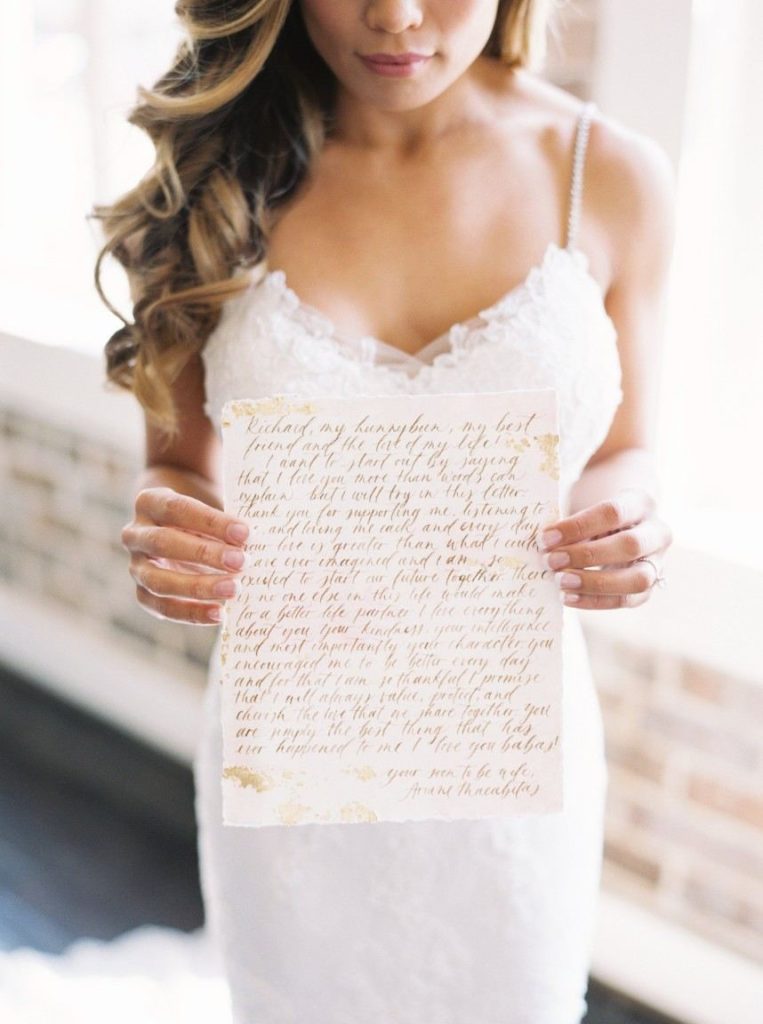 Richard, my hunnybun, my best
friend and the love of my life!
I want to start out by saying
that I love you more than words can
explain but I will try in this letter.
thank you for supporting me, listening to
and loving me each and every day
your love is greater than what I could
ave ever imagined and I am so
excited to start our future together. There
is no one else in this life would make
for a better life partner I love everything
about you your kindness, your intelligence
and most importantly your character. you
encouraged me to be better every day
and for that I am so thankful I promise
that I will always value, protect and
cherish the love that we share together. You
are simply the best thing that has
ever happened to me. I love you babas!
your soon to be wife,
Ariane